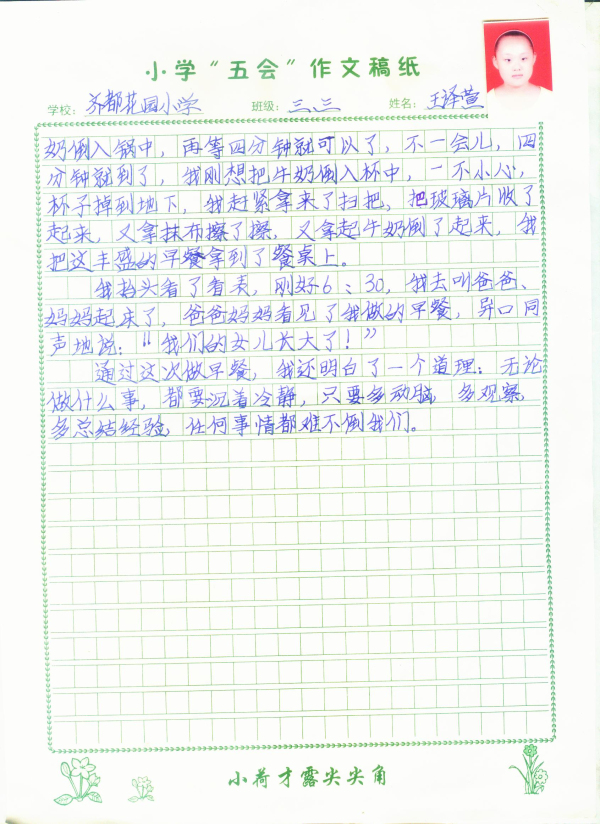 小学“五会”作文稿纸
学校：齐都花园小学 班级：三、三 姓名：王泽萱
奶倒入锅中，再等四分钟就可以了，不一会儿，四
分钟就到了，我刚想把牛奶倒入杯中，一不小心，
杯子掉到地下，我赶紧拿来了扫把，把玻璃片收了
起来，又拿抹布擦了擦，又拿起牛奶倒了起来，我
把这丰盛的早餐拿到了餐桌上。
我抬头看了看表，刚好6：30，我去叫爸爸、
妈妈起床了，爸爸妈妈看见了我做的早餐，异口同
声地说：“我们的女儿长大了！”
通过这次做早餐，我还明白了一个道理：无论
做什么事，都要沉着冷静，只要多动脑，多观察，
多总结经验，任何事情都难不倒我们。
小荷才露尖尖角